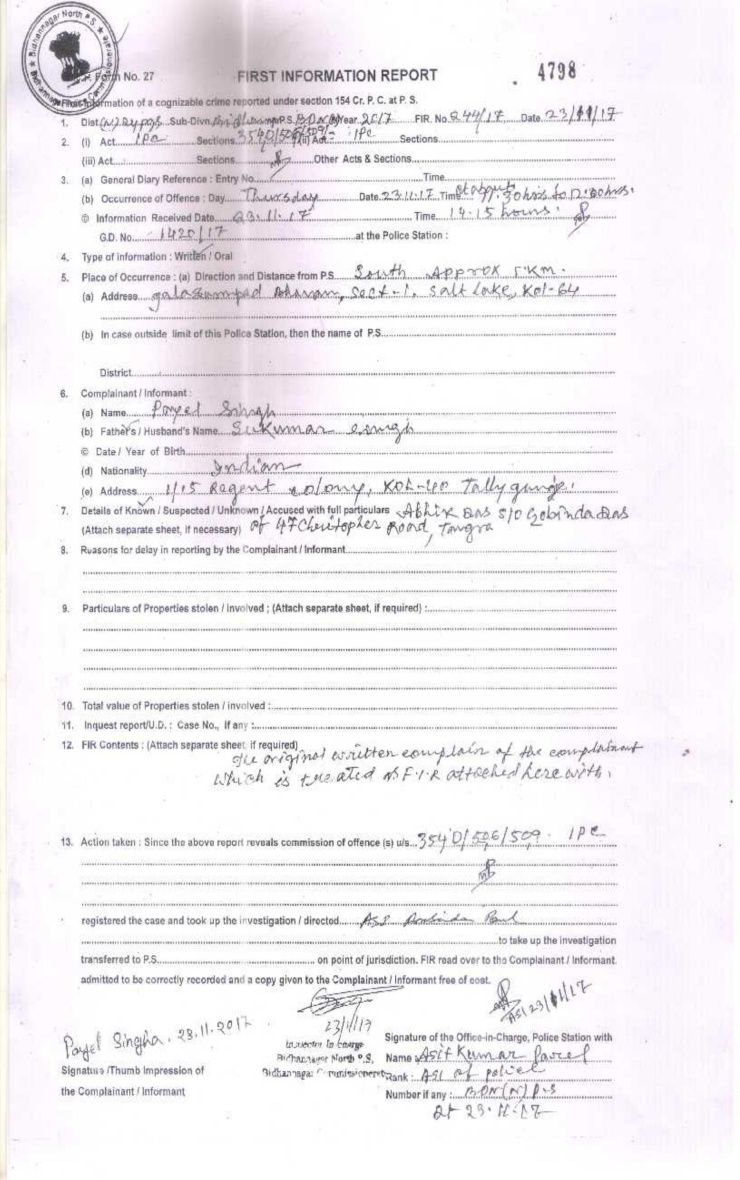 Bidhannagar North P.S.
Form No. 27
FIRST INFORMATION REPORT
4798
First Information of a cognizable crime reported under section 154 Cr. P. C. at P. S.
1. Dist (N) 24 pgs Sub-Divn. P.S. BDN(N) Year 2017 FIR. No 244/17 Date 23/11/17
2. (i) Act IPC Sections 354D/506/509 (ii) Act IPC Sections
(iii) Act Sections Other Acts & Sections
3. (a) General Diary Reference : Entry No. Time
(b) Occurrence of Offence : Day Thursday Date 23.11.17 Time
© Information Received Date 23.11.17 Time 14.15 hours.
G.D. No. 1420/17 at the Police Station :
4. Type of information : Written / Oral
5. Place of Occurrence : (a) Direction and Distance from P.S. South Approx 5 KM.
(a) Address Sect-1, Salt Lake, Kol-64
(b) In case outside limit of this Police Station, then the name of P.S.
District
6. Complainant / Informant :
(a) Name Payel Singh
(b) Father's / Husband's Name Sukumar Singh
© Date / Year of Birth
(d) Nationality Indian
(e) Address 1/15 Regent colony, KOL-40 Tallygunge.
7. Details of Known / Suspected / Unknown / Accused with full particulars Abhik Das S/O Gobinda Das
(Attach separate sheet, if necessary) of 47 Cheristopher Road, Tangra
8. Reasons for delay in reporting by the Complainant / Informant
9. Particulars of Properties stolen / involved ; (Attach separate sheet, if required) :
10. Total value of Properties stolen / involved :
11. Inquest report/U.D. : Case No., if any :
12. FIR Contents : (Attach separate sheet, if required)
The original written complain of the complainant
which is treated as F.I.R attached here with.
13. Action taken : Since the above report reveals commission of offence (s) u/s 354D/506/509 IPC
registered the case and took up the investigation / directed ASI
to take up the investigation
transferred to P.S. on point of jurisdiction. FIR read over to the Complainant / Informant,
admitted to be correctly recorded and a copy given to the Complainant / Informant free of cost.
ASI 23/11/17
23/11/17
Payel Singha. 23.11.2017
Inspector In charge
Bidhannagar North P.S.
Bidhannagar Commissionerate
Signature /Thumb Impression of
the Complainant / Informant
Signature of the Office-in-Charge, Police Station with
Name Asit Kumar
Rank : ASI of police
Number if any : BDN(N) P.S
dt 23.11.17